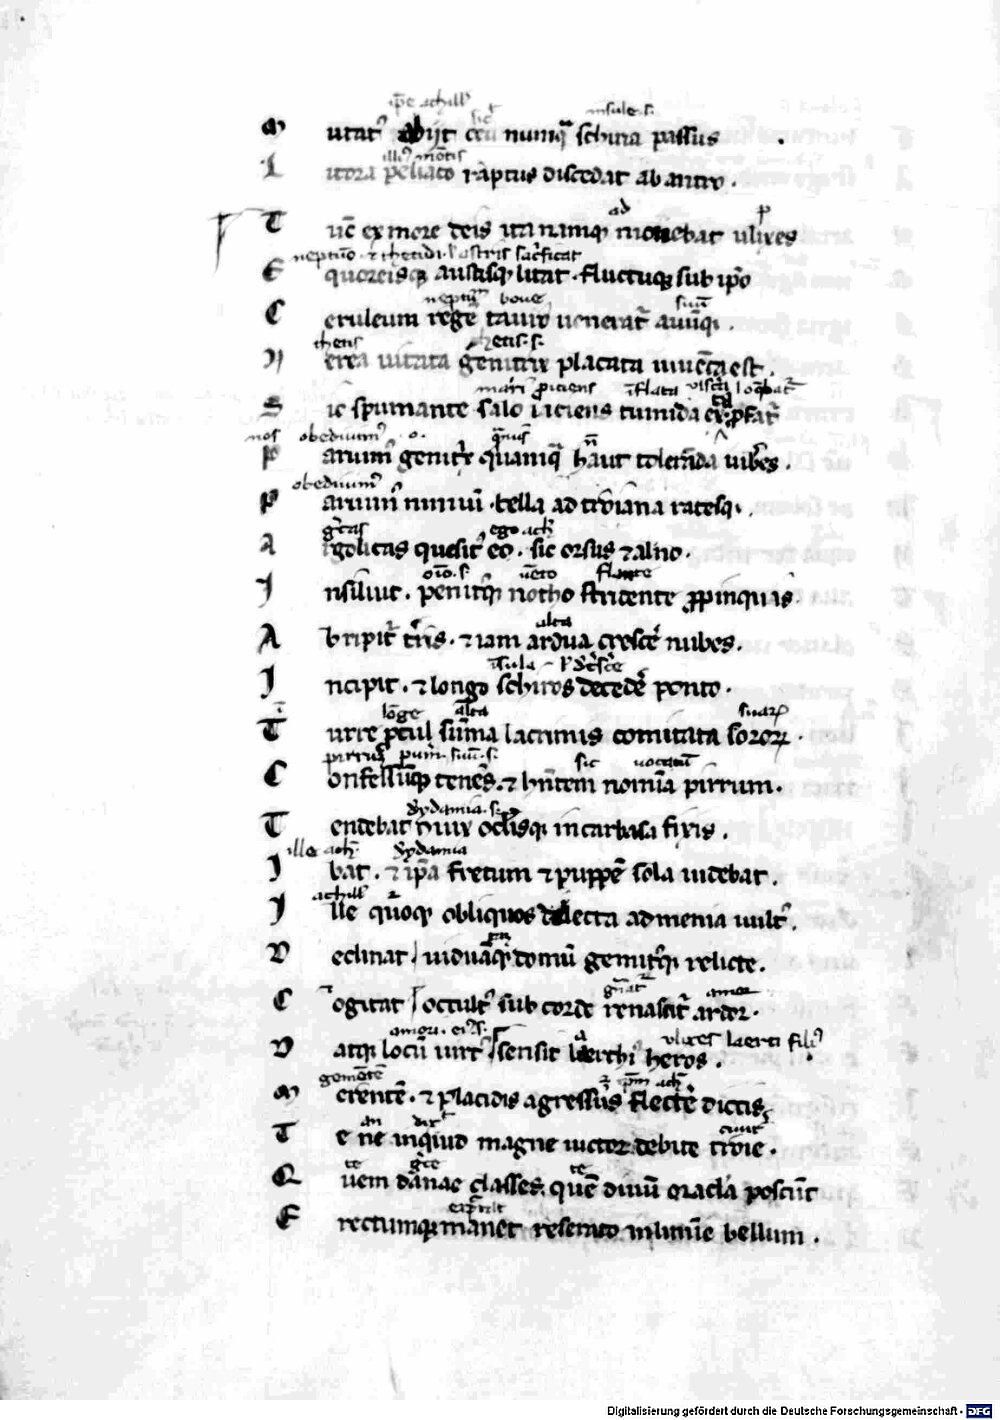 ip̄e achill᷒
sic insule .s.
M utat᷒ abijt ceu numq̄ schiria passus .
illi᷒ mōtis
L itora peliaco raptus discedat ab antro .
ad p
T uc̄ ex more deis ita namq; monebat ulixes
neptūo ⁊ thetidi · l᷒ astris sac̓ficat
E quoreisq; austisq; litat · fluctuq; sub ip̄o
neptū boue suū
C eruleum regē tauro uenerat᷒ auūq; .
thetis thetis .s.
N erea uitata genitrix placata iuuēca est .
mari ꝓiciens īflata
S ic spumante salo iaciens tumida exta ꝓfat᷒
nos obediuim᷒ .o. q̄uis
P aruim᷒ genit̓x quamq̄ haut tolerāda iubes .
obediuim᷒
P aruim᷒ nimiū · bella ad troiana ratesq; .
grecas ego ach̄
A rgolicas quesit᷒ eo . sic orsus ⁊ alno .
uēto flante
I nsiliuit . penit᷒q; notho stridente ꝓpinquis
alta
A bripit᷒ tr̄ris . ⁊ iam ardua cresce᷒ nubes .
īsula
I ncipit . ⁊ longo schiros decede᷒ ponto .
lōge alta suaꝝ
T urre ꝓcul sūma lacrimis comitata soroꝝ .
pirrus sic uocatū
C onfessūq; tenēs . ⁊ hn̄tem nomīa pirrum .
deydamia .s.
T endebat 9iux oc̄lisq; in carbasa fixis .
ille ach̄. deydamia
I bat . ⁊ ip̄a fretum ⁊ puppē sola uidebat .
achill᷒
I lle quoq; obliquos dilecta ad menia uult᷒ .
D eclinat / uiduāq; domū gemit᷒q; relicte .
amor
C ogitat / occult᷒ sub corde renascit᷒ ardor .
amori · ulixes laerti fili᷒
D atq; locū uirt᷒ / sensit laerthi᷒ heros .
gemētē ach̄
M erentē . ⁊ placidis agressus flecte᷒ dictis
an dix̄
T e ne inquid magne uictor debite troie .
te g̓ce te
Q uem danae classes . quē diuū oracl̄a poscūt
E rectumq; manet reserato in limīe bellum .
Digitalisierung gefördert durch die Deutsche Forschungsgemeinschaft - DFG